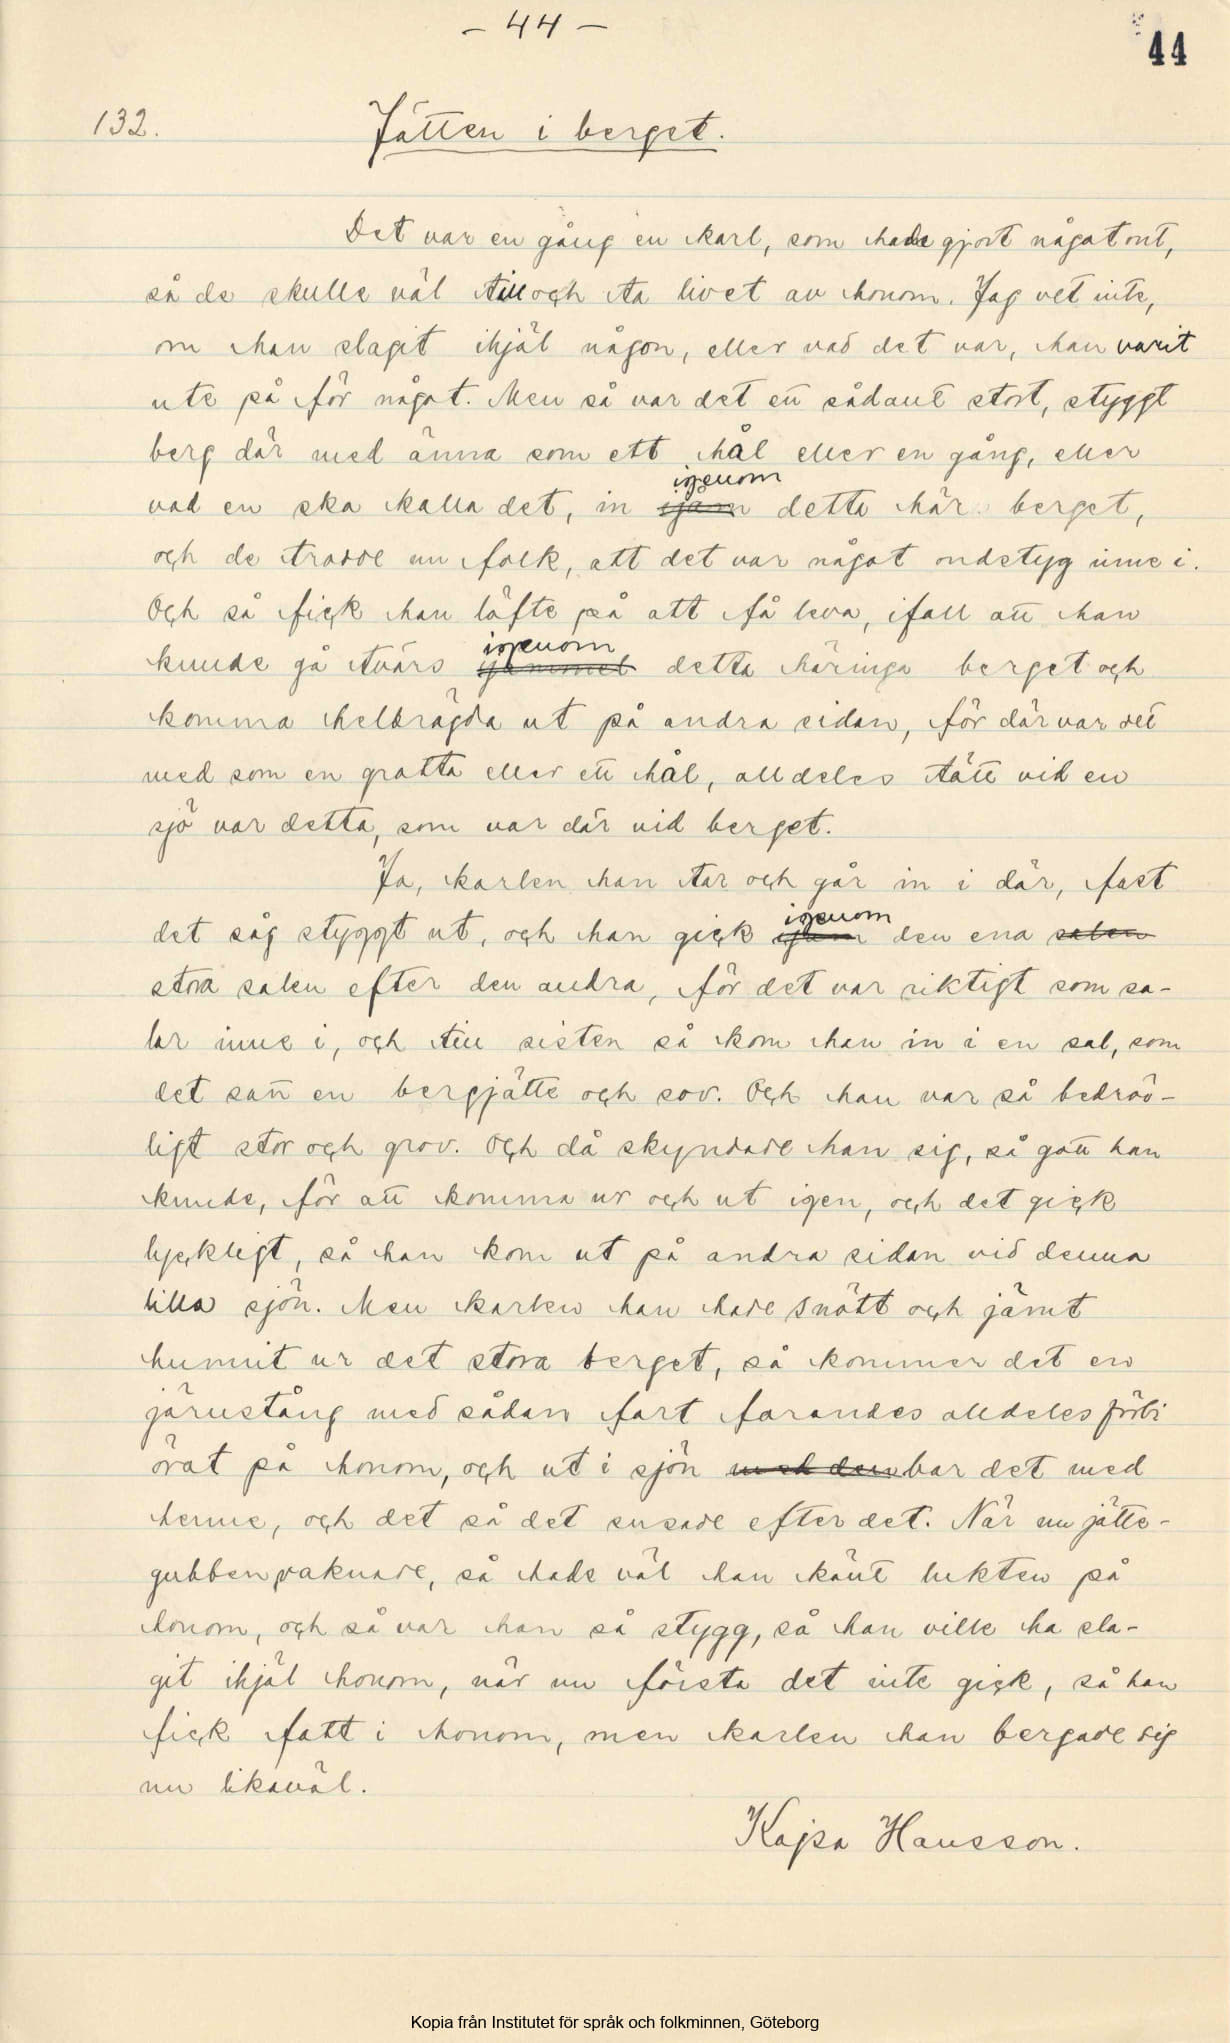 - 44 -
44
132.
Jätten i berget.
Det var en gång en karl, som hade gjort något ont,
så de skulle väl till och ta livet av honom. Jag vet inte,
om han slagit ihjäl någon, eller vad det var, han varit
ute på för något. Men så var det ett sådant stort, styggt
berg där med änna som ett hål eller en gång, eller
igenom
vad en ska kalla det, in detta här berget,
och de trodde nu folk, att det var något ondstyg inne i.
Och så fick han löfte på att få leva, ifall att han
igenom
kunde gå tvärs detta häringa berget och
komma helbrägda ut på andra sidan, för där var det
med som en grotta eller ett hål, alldeles tätt vid en
sjö var detta, som var där vid berget.
Ja, karlen han tar och går in i där, fast
igenom
det såg styggt ut, och han gick den ena salen
stora salen efter den andra, för det var riktigt som sa-
lar inne i, och till sisten så kom han in i en sal, som
det satt en bergjätte och sov. Och han var så bedröv-
ligt stor och grov. Och då skyndade han sig, så gott han
kunde, för att komma ur och ut igen, och det gick
lyckligt, så han kom ut på andra sidan vid denna
lilla sjön. Men karlen han hade snått och jämt
hunnit ur det stora berget, så kommer det en
järnstång med sådan fart farandes alldeles förbi
örat på honom, och ut i sjön med den bar det med
henne, och det så det susade efter det. När nu jätte-
gubben vaknade, så hade väl han känt lukten på
honom, och så var han så stygg, så han ville ha sla-
git ihjäl honom, när nu första det inte gick, så han
fick fatt i honom, men karlen han bergade sig
nu likaväl.
Kajsa Hansson.
Kopia från Institutet för språk och folkminnen, Göteborg